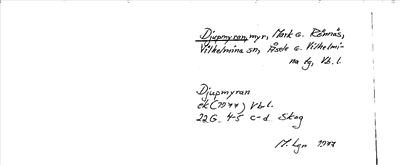 Djupmyran, myr, Mark o. Rönnäs,
Vilhelmina sn, Åsele o. Vilhelmi-
na tg, Vb. l.
Djupmyran
ek (1977) Vb l.
22G. 4-5 c-d. Skog
M. Lgn 1977